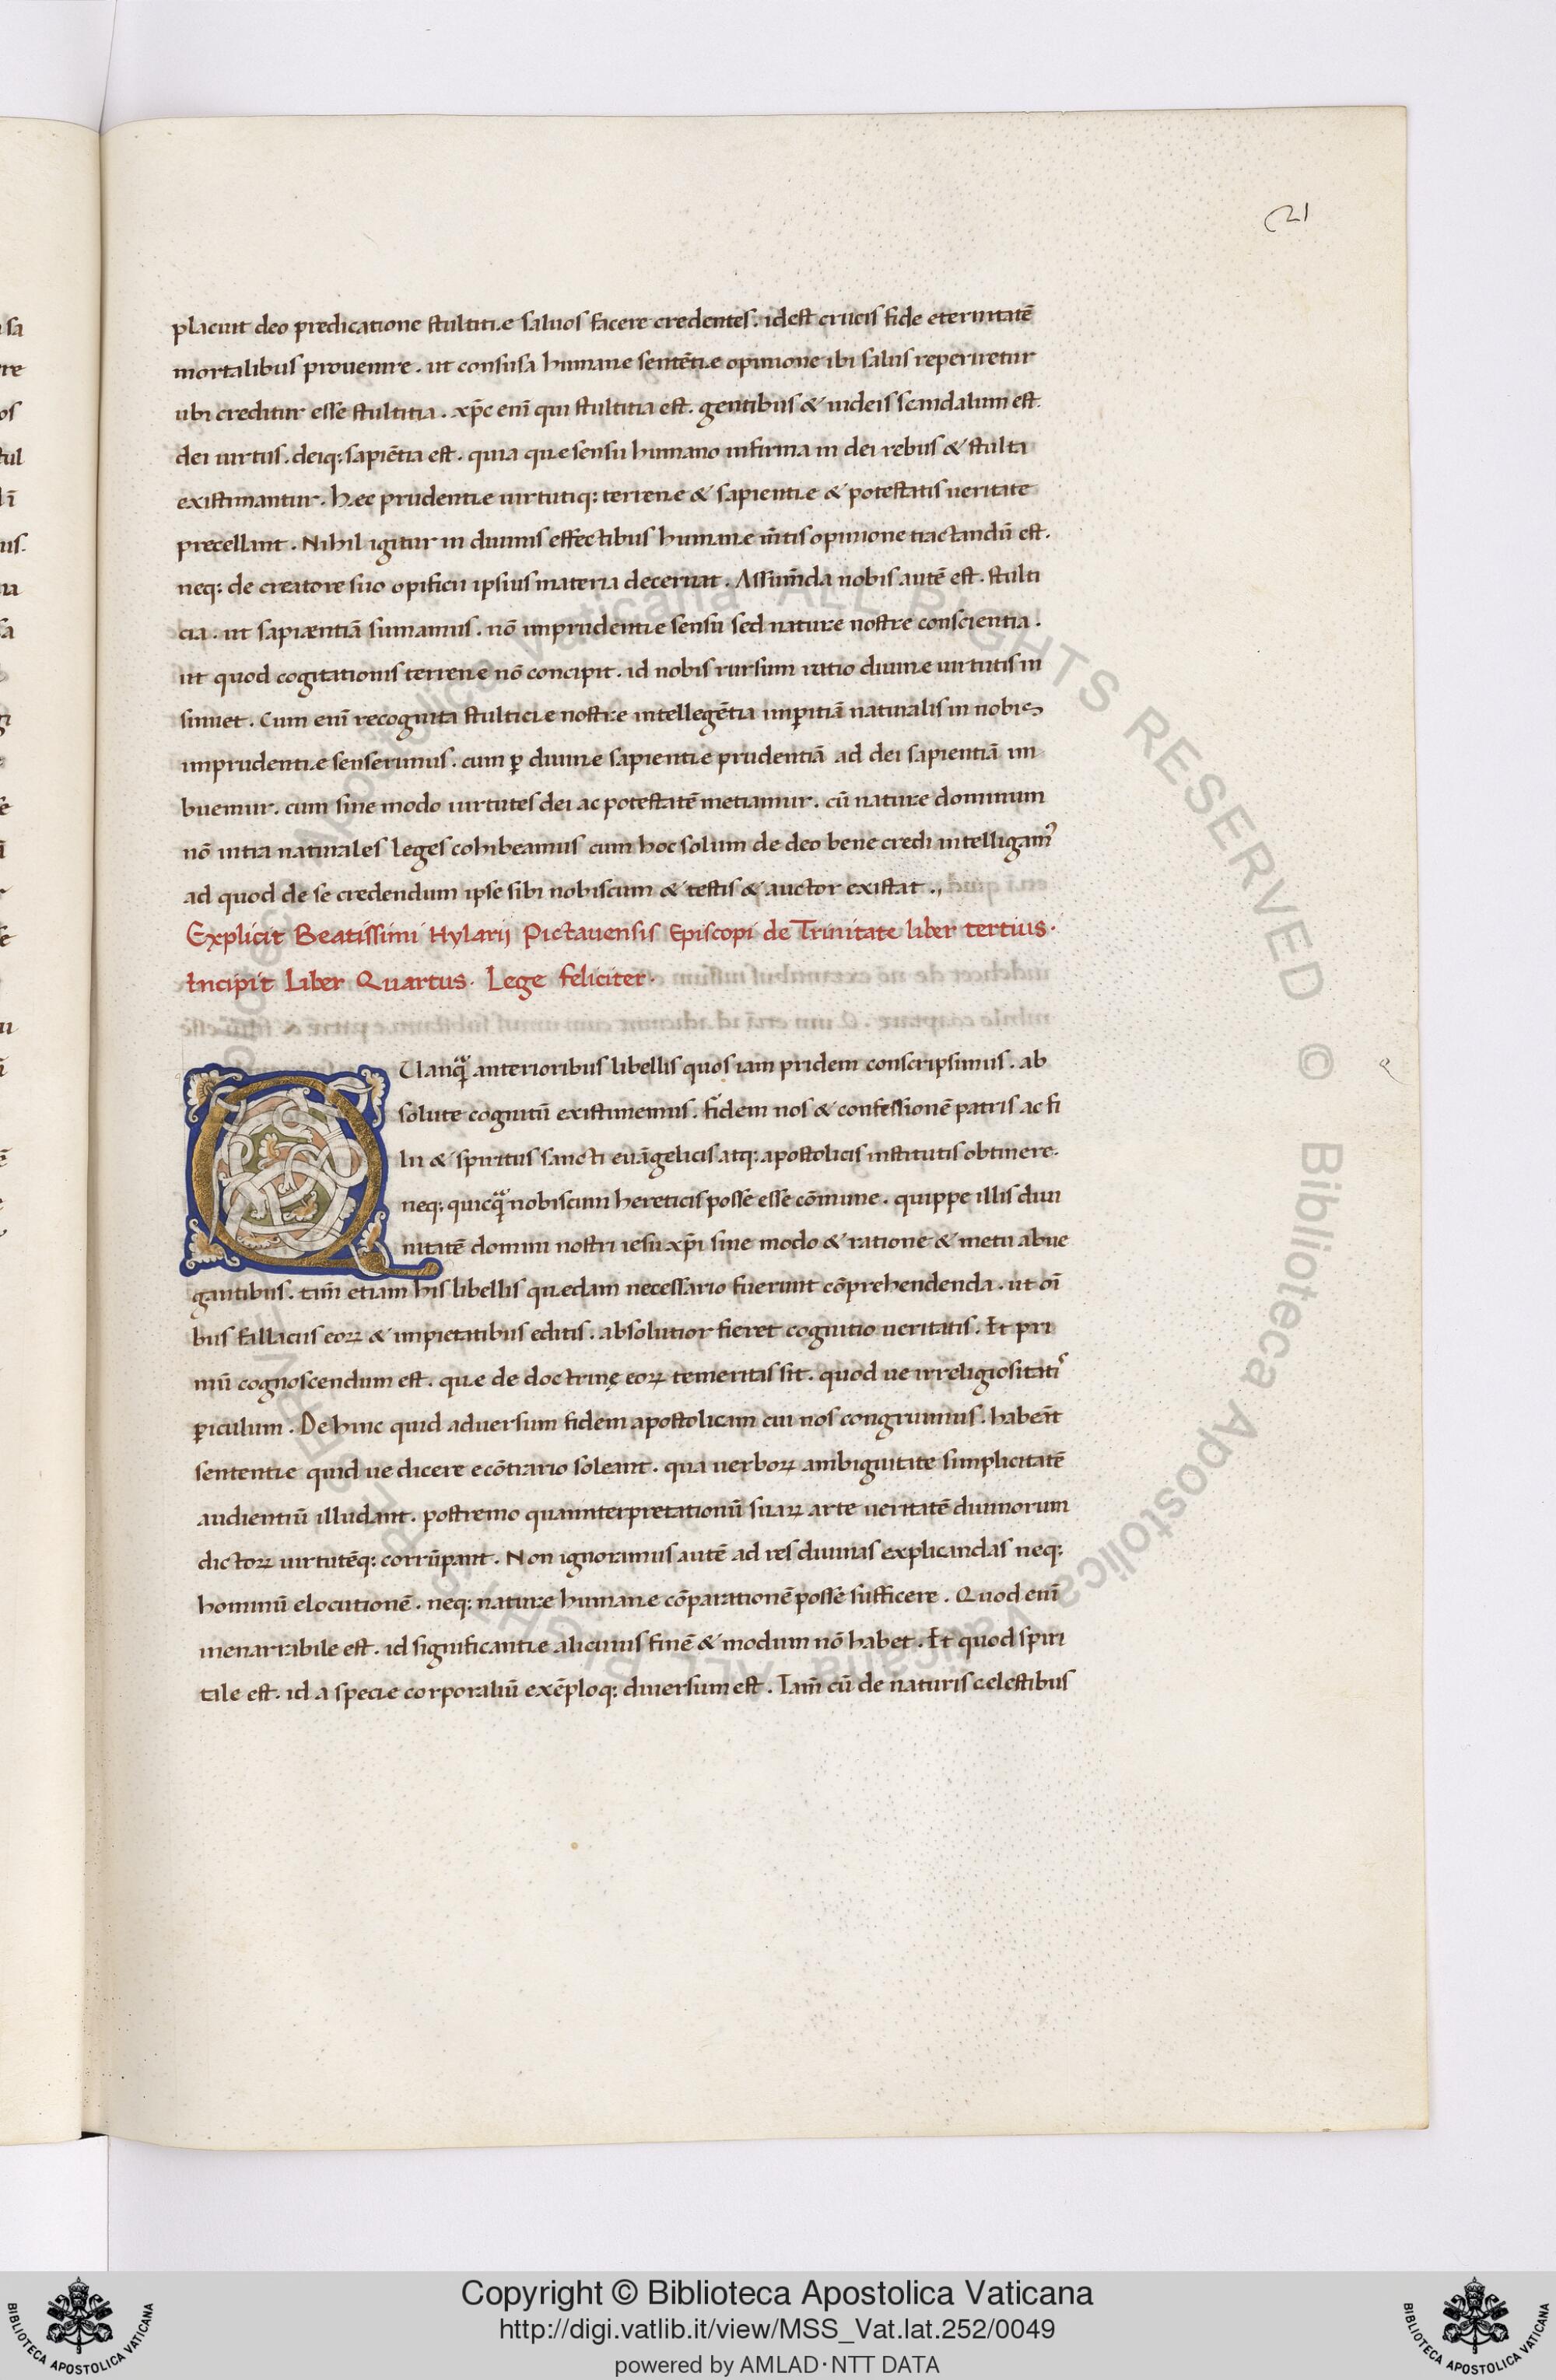 21
placuit deo predicatione stultitiæ saluos facere credentes. idest crucis fide eternitatē
mortalibus prouenire. ut confusa humanæ sentētiæ opinione ibi salus reperiretur
ubi creditur esse stultitia. xp̄c enī qui stultitia est. gentibus & iudeis scandalum est.
dei uirtus. deiq; sapiētia est. quia quæ sensu humano infirma in dei rebus & stulta
existimantur. hæc prudentiæ uirtutiq; terrenæ & sapientiæ & potestatis ueritate
precellant. Nihil igitur in diuinis effectibus humanæ m̄tis opinione tractandū est.
neq; de creatore suo opificii ipsius materia decernat. Assum̄da nobis autē est. stulti
cia. ut sapiæntiā sumamus. nō imprudentiæ sensu sed naturæ nostre conscientia.
ut quod cogitationis terrenæ nō concipit. id nobis rursum ratio diuinæ uirtutis in
sinuet. Cum enī recognita stulticiæ nostræ intellegētia imꝑitiā naturalis in nobis
imprudentiæ senserimus. cum ꝑ diuinæ sapientiæ prudentiā ad dei sapientiā im
buemur. cum sine modo uirtutes dei ac potestatē metiamur. cū naturæ dominum
nō intra naturales leges cohibeamus cum hoc solum de deo bene credi intelligam᾽
ad quod de se credendum ipse sibi nobiscum & testis & auctor existat.,
Explicit Beatissimi Hylarij Pictauensis Episcopi de Trinitate liber tertius.
Incipit Liber Quartus. Lege feliciter.
QUanq̄ᵃ anterioribus libellis quos iam pridem conscripsimus. ab
solute cognitū existimemus. fidem nos & confessionē patris ac fi
lii & spiritus sancti euāgelicis atq; apostolicis institutis obtinere.
neq; quicq̄ᵃ nobiscum hereticis posse esse cōmune. quippe illis diui
nitatē domini nostri iesu xp̄i sine modo & ratione & metu abne
gantibus. tam̄ etiam his libellis quædam necessario fuerunt cōprehendenda. ut oī
bus fallaciis eoꝝ & impietatibus editis. absolutior fieret cognitio ueritatis. Et pri
mū cognoscendum est. quæ de doctrinę eoꝝ temeritas sit. quod ue irreligiositati᾽
ꝑiculum. Dehinc quid aduersum fidem apostolicam cui nos congruimus. habeāt
sententiæ quid ue dicere e cōtrario soleant. qua uerboꝝ ambiguitate simplicitatē
audientiū illudant. postremo qua interpretationū suaꝝ arte ueritatē diuinorum
dictoꝝ uirtutēq; corrūpant. Non ignoramus autē ad res diuinas explicandas neq;
hominū elocutionē. neq; naturæ humanæ cōparationē posse sufficere. Quod enī
inenarrabile est. id significantiæ alicuius finē & modum nō habet. Et quod spiri
tale est. id a specie corporaliū exēploq; diuersum est. Iam̄ cū de naturis celestibus
Copyright © Biblioteca Apostolica Vaticana
http://digi.vatlib.it/view/MSS_Vat.lat.252/0049
powered by AMLAD·NTT DATA